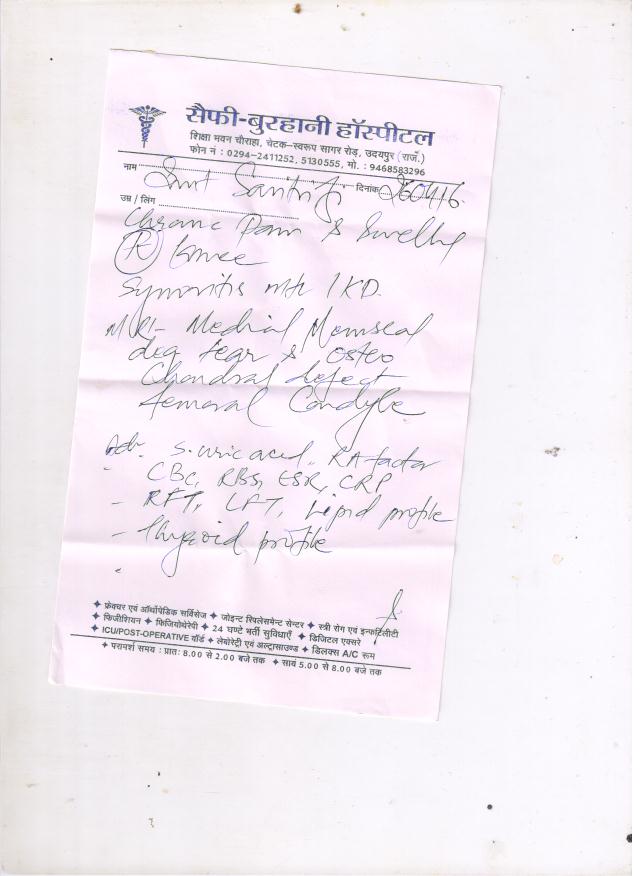 सैफी-बुरहानी हॉस्पीटल
शिक्षा भवन चौराहा, चेटक-स्वरूप सागर रोड़, उदयपुर (राज.)
फोन नं : 0294-2411252, 5130555, मो. : 9468583296
नाम Smt दिनांक
उम्र / लिंग
Chronic Pain & Swelling
(R) Knee
Synovitis IKD.
MRI- Medial Meniscal
deg tear & Osteo
Chondral defect
femoral Condyle
Adv. S. uric acid, RA factor
CBC, RBS, ESR, CRP
- RFT, LFT, Lipid profile
- Thyroid profile
✦ फ्रेक्चर एवं ऑर्थोपेडिक सर्विसेज ✦ जोइन्ट रिपलेसमेन्ट सेन्टर ✦ स्त्री रोग एवं इन्फर्टिलीटी
✦ फिजीशियन ✦ फिजियोथेरेपी ✦ 24 घण्टे भर्ती सुविधाएँ ✦ डिजिटल एक्सरे
✦ ICU/POST-OPERATIVE वॉर्ड ✦ लेबोरेट्री एवं अल्ट्रासाउण्ड ✦ डिलक्स A/C रूम
✦ परामर्श समय : प्रातः 8.00 से 2.00 बजे तक ✦ सायं 5.00 से 8.00 बजे तक